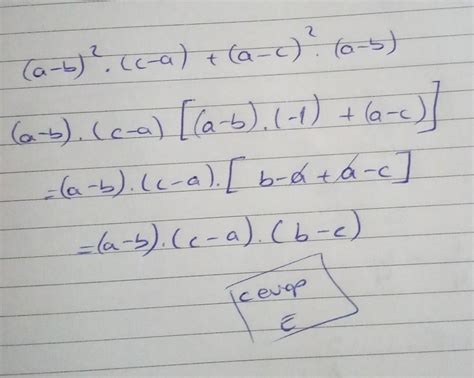 (a-b)². (c-a) + (a-c)². (a-b)
(a-b). (c-a) [(a-b). (-1) + (a-c)]
=(a-b). (c-a). [ b-a+a-c]
=(a-b). (c-a). ( b-c)
cevap
E